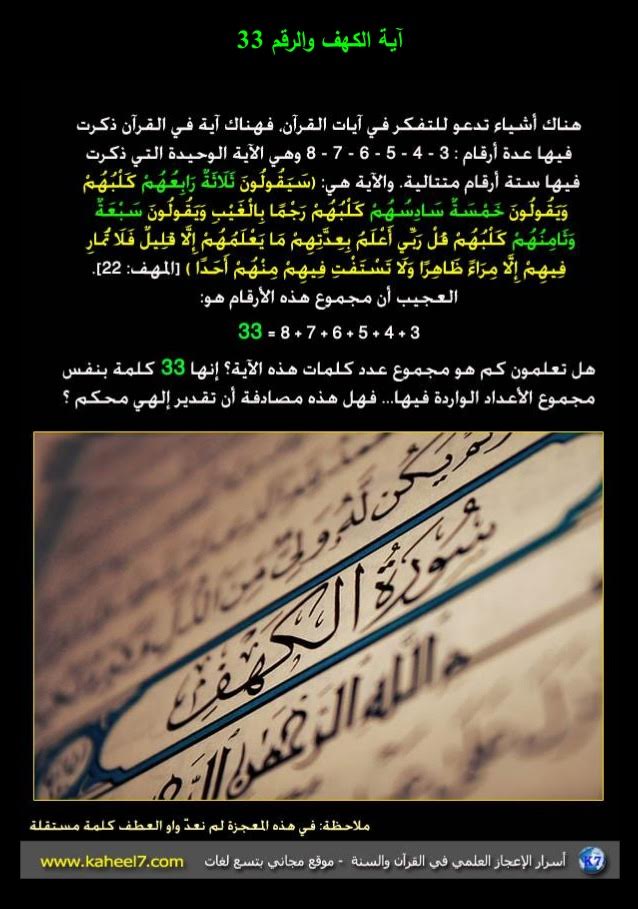 آية الكهف والرقم 33
هناك أشياء تدعو للتفكر في آيات القرآن، فهناك آية في القرآن ذكرت
فيها عدة أرقام : 3 - 4 - 5 - 6 - 7 - 8 وهي الآية الوحيدة التي ذكرت
فيها ستة أرقام متتالية. والآية هي: (سَيَقُولُونَ ثَلَاثَةٌ رَابِعُهُمْ كَلْبُهُمْ
وَيَقُولُونَ خَمْسَةٌ سَادِسُهُمْ كَلْبُهُمْ رَجْمًا بِالْغَيْبِ وَيَقُولُونَ سَبْعَةٌ
وَثَامِنُهُمْ كَلْبُهُمْ قُلْ رَبِّي أَعْلَمُ بِعِدَّتِهِمْ مَا يَعْلَمُهُمْ إِلَّا قَلِيلٌ فَلَا تُمَارِ
فِيهِمْ إِلَّا مِرَاءً ظَاهِرًا وَلَا تَسْتَفْتِ فِيهِمْ مِنْهُمْ أَحَدًا ) [المهف: 22].
العجيب أن مجموع هذه الأرقام هو:
3 + 4 + 5 + 6 + 7 + 8 = 33
هل تعلمون كم هو مجموع عدد كلمات هذه الآية؟ إنها 33 كلمة بنفس
مجموع الأعداد الواردة فيها... فهل هذه مصادفة أن تقدير إلهي محكم ؟
يَكُن لَّهُ وَلِيٌّ مِّنَ الذُّلِّ
سُورَةُ الكَهْفِ
اللَّهِ الرَّحْمَٰنِ
ملاحظة: في هذه المعجزة لم نعدّ واو العطف كلمة مستقلة
أسرار الإعجاز العلمي في القرآن والسنة - موقع مجاني بتسع لغات www.kaheel7.com
K7